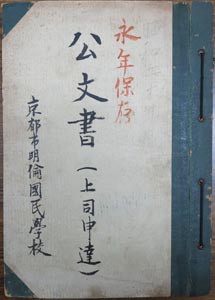 永年保存
公文書(上司申達)
京都市明倫國民學校